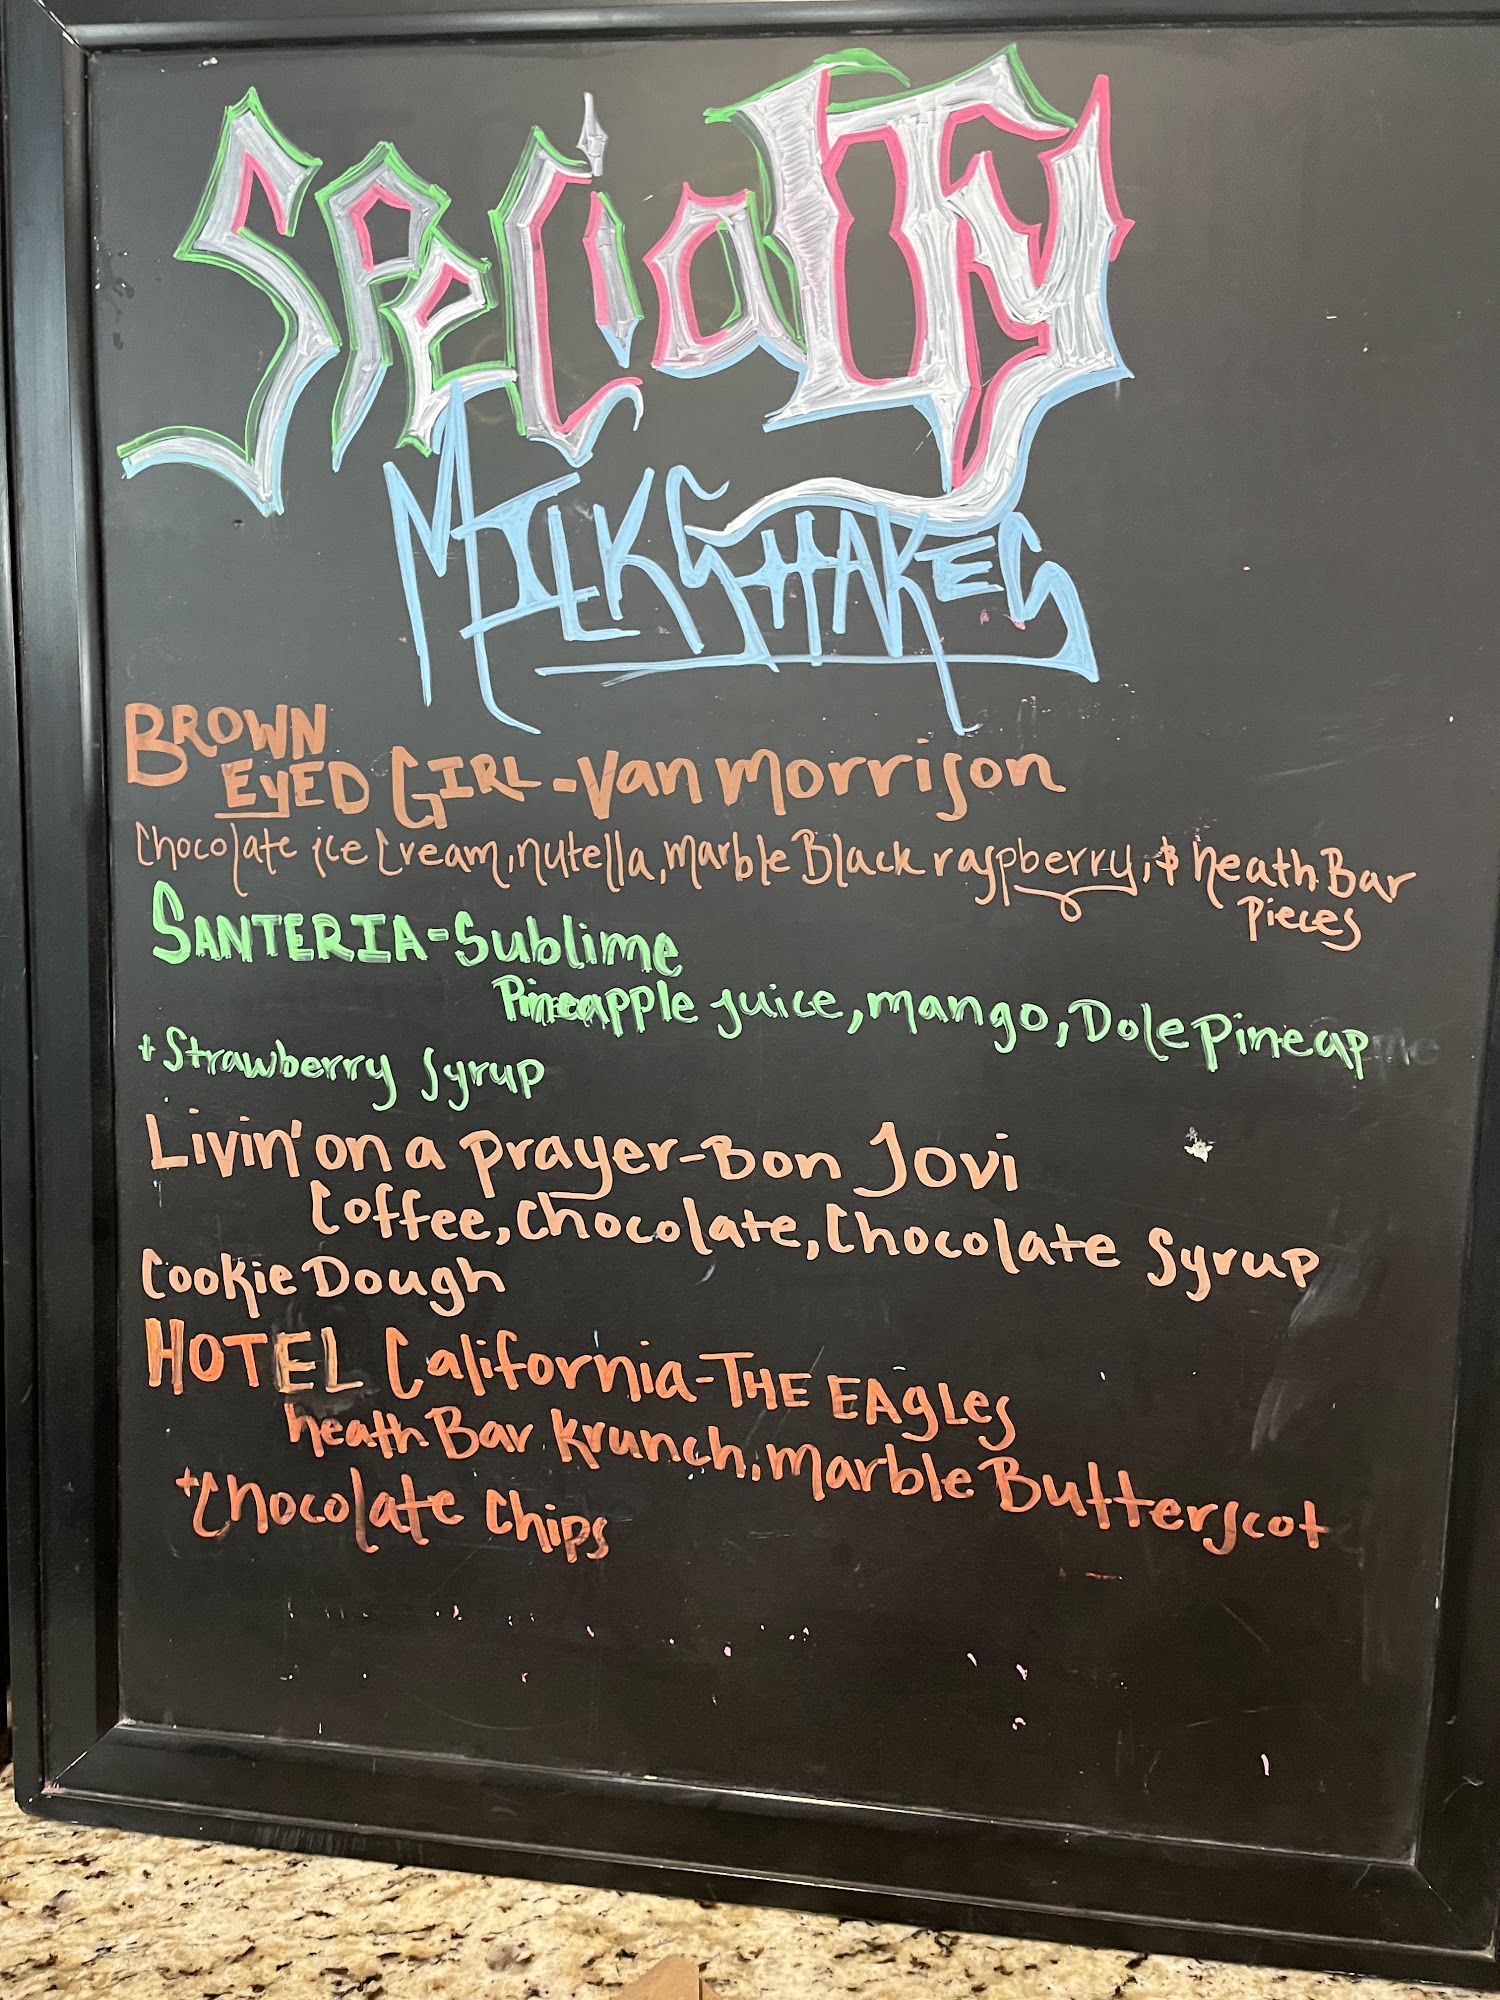 SPeciaLTy
MILKSHAKES
BROWN
EYED GIRL - Van Morrison
Chocolate ice Cream, nutella, Marble Black raspberry, & heath Bar
Pieces
SANTERIA - Sublime
Pineapple juice, mango, Dole Pineapple
+ Strawberry Syrup
Livin' on a prayer - Bon Jovi
Coffee, Chocolate, Chocolate Syrup
Cookie Dough
HOTEL California - THE EAgLes
heath Bar Krunch, Marble Butterscot
+ Chocolate Chips